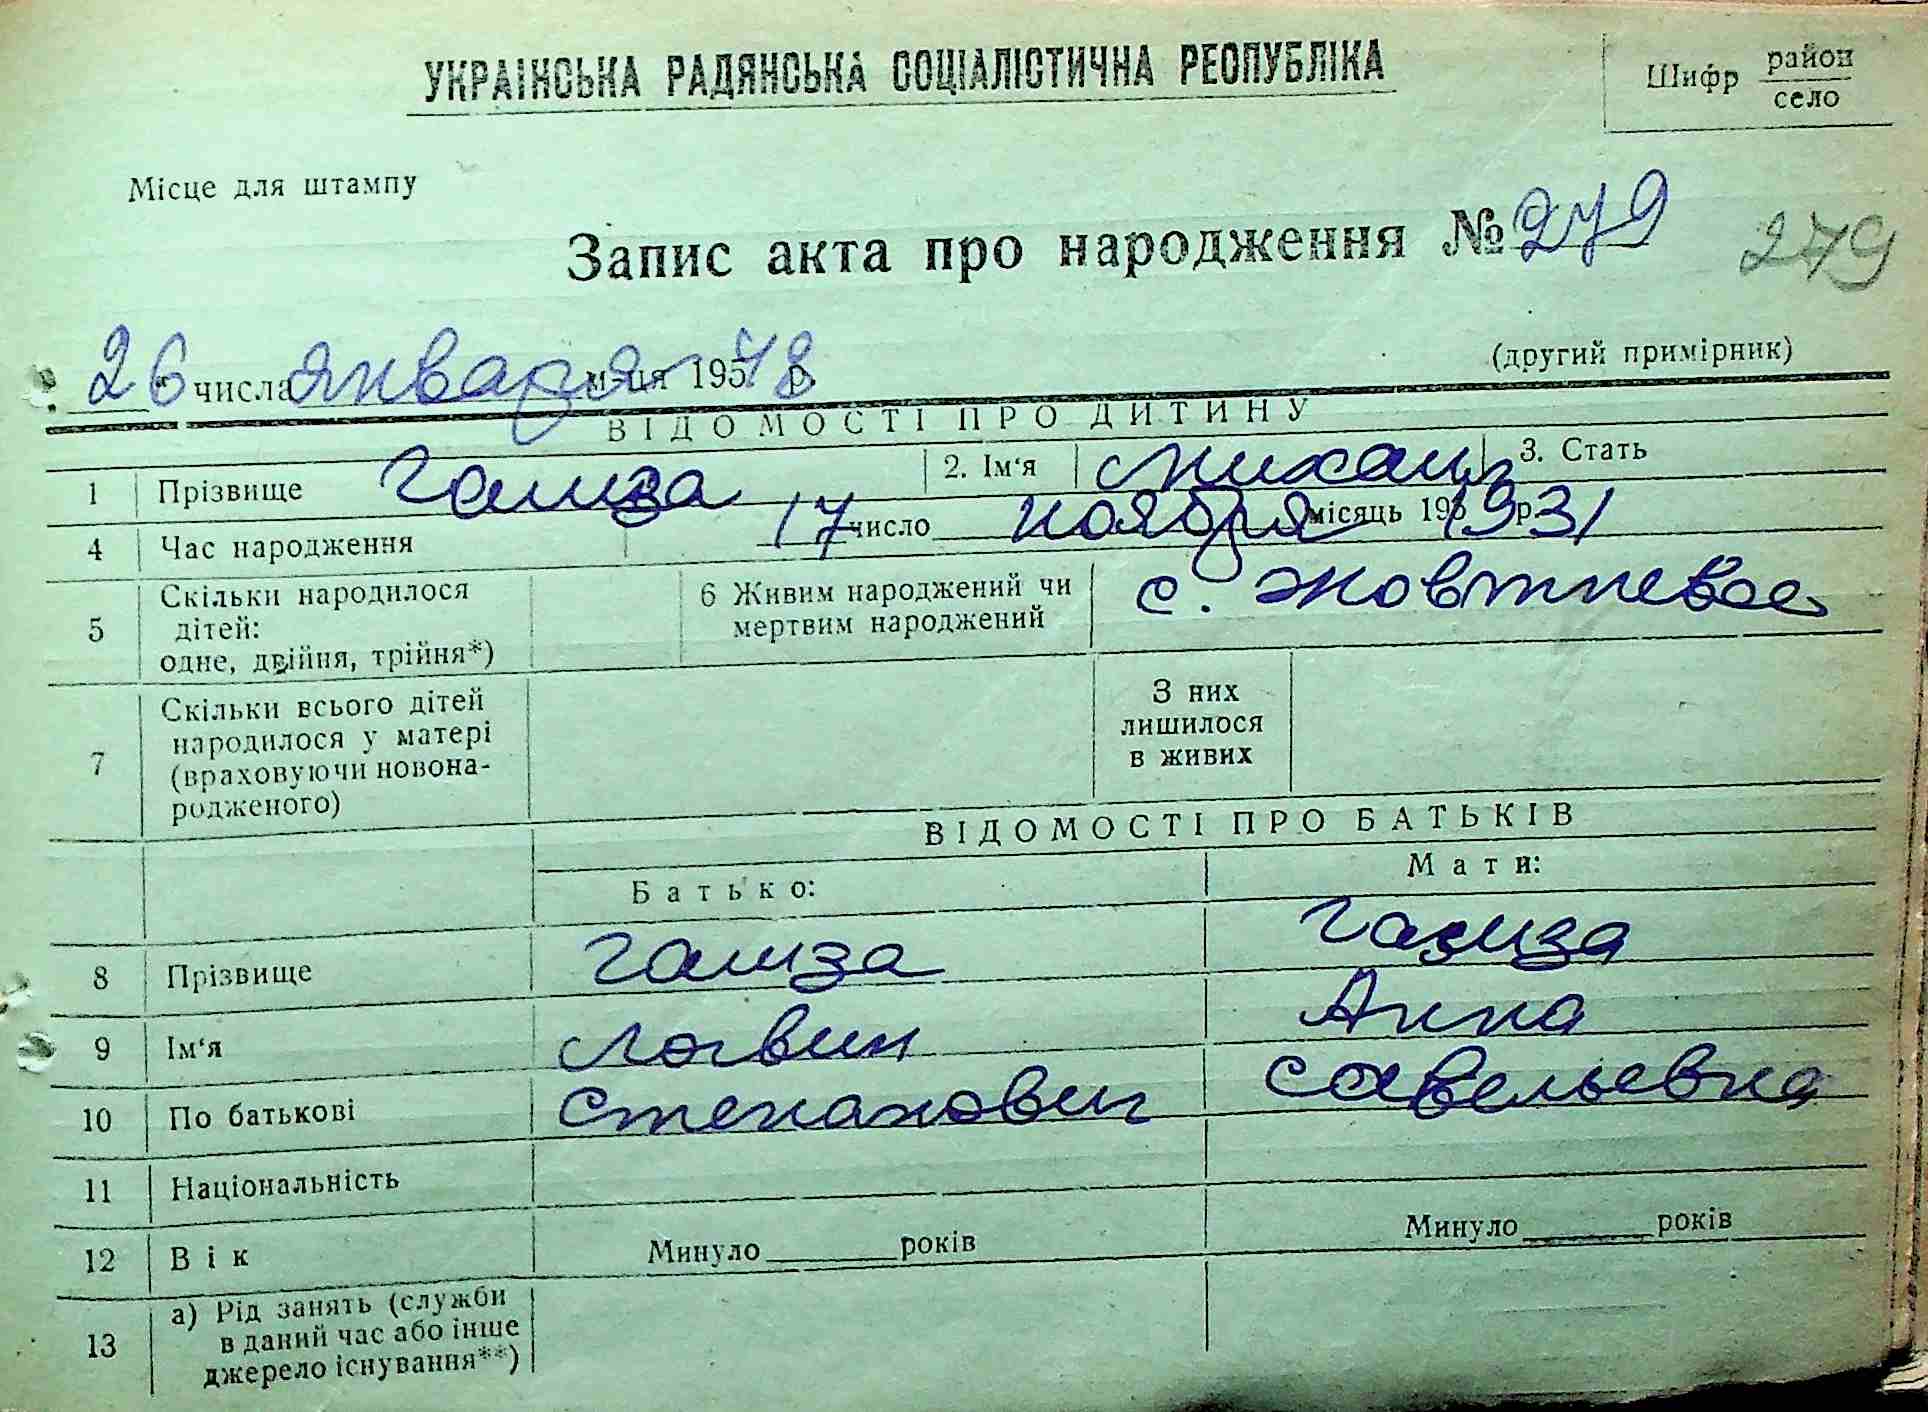 УКРАЇНСЬКА РАДЯНСЬКА СОЦІАЛІСТИЧНА РЕСПУБЛІКА
Шифр район
село
Місце для штампу
Запис акта про народження № 279 279
26 числа января м-ця 195 48 р.
(другий примірник)
ВІДОМОСТІ ПРО ДИТИНУ
1 Прізвище Гамза 2. Ім‘я Михаил 3. Стать
4 Час народження 17 число ноября місяць 195 1931 р.
5 Скільки народилося
дітей:
одне, двійня, трійня*)
6 Живим народжений чи
мертвим народжений
с. Жовтневое
7 Скільки всього дітей
народилося у матері
(враховуючи новона-
родженого)
З них
лишилося
в живих
ВІДОМОСТІ ПРО БАТЬКІВ
Батько: Мати:
8 Прізвище Гамза Гамза
9 Ім‘я Логвин Анна
10 По батькові Степанович Савельевна
11 Національність
12 Вік Минуло років Минуло років
13 а) Рід занять (служби
в даний час або інше
джерело існування**)